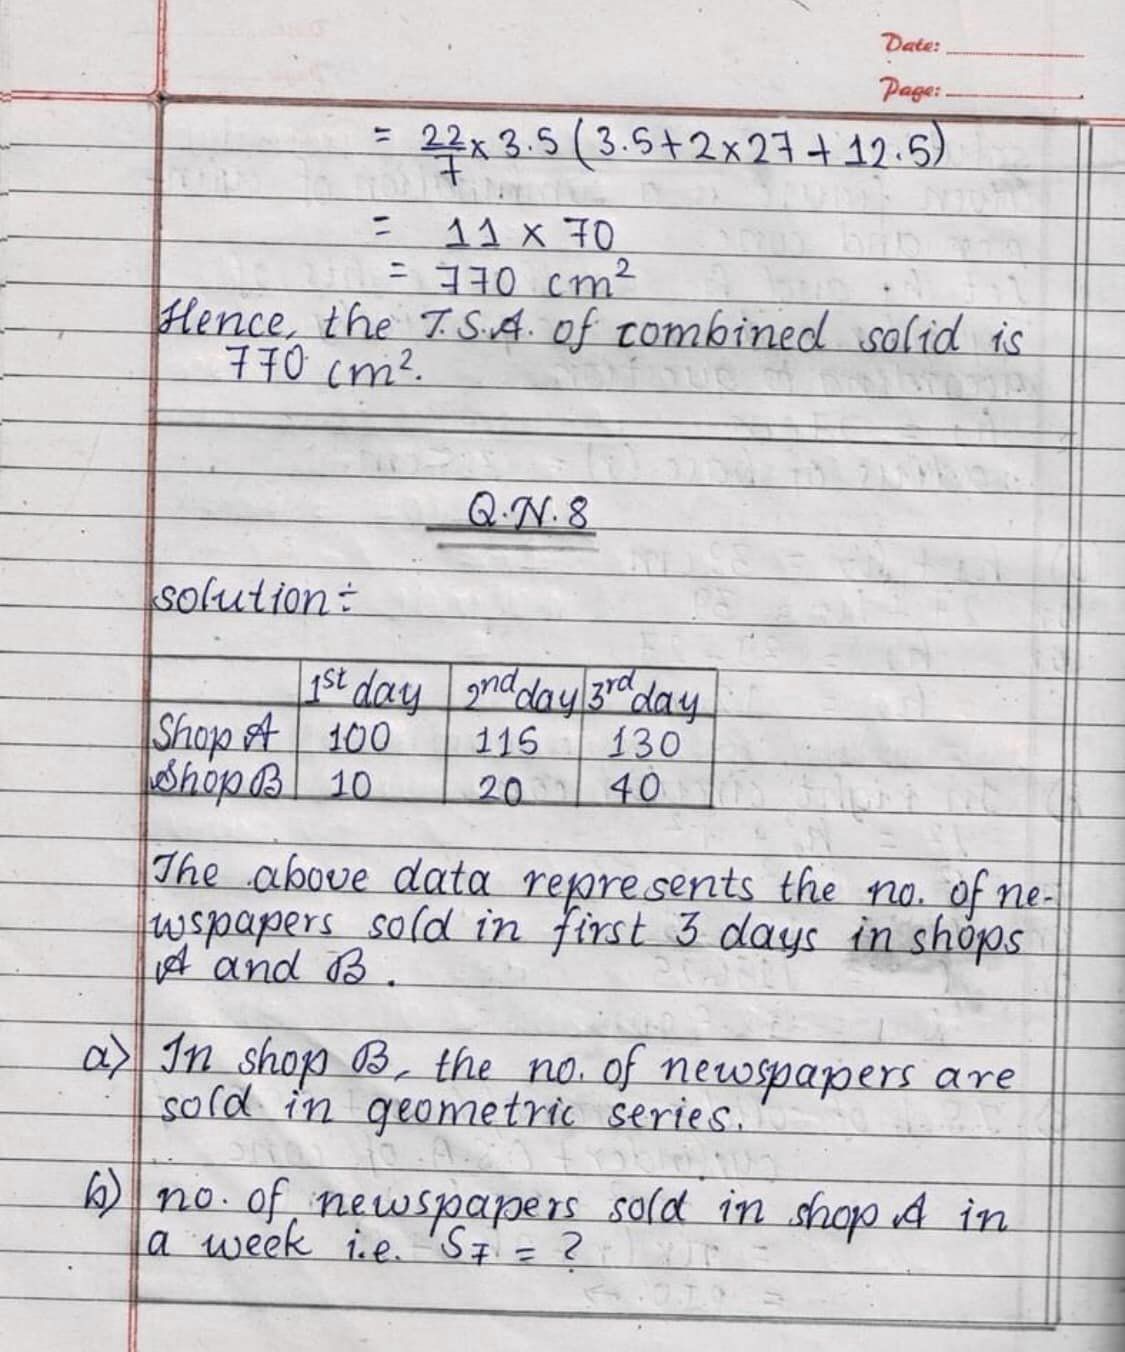 Date:
Page:
= 22/7 x 3.5 (3.5+2x27+12.5)
= 11 x 70
= 770 cm²
Hence, the T.S.A. of combined solid is
770 cm².
Q.N.8
solution÷
1st day 2nd day 3rd day
Shop A 100 115 130
Shop B 10 20 40
The above data represents the no. of ne-
wspapers sold in first 3 days in shops
A and B.
a) In shop B, the no. of newspapers are
sold in geometric series.
b) no. of newspapers sold in shop A in
a week i.e. S7 = ?